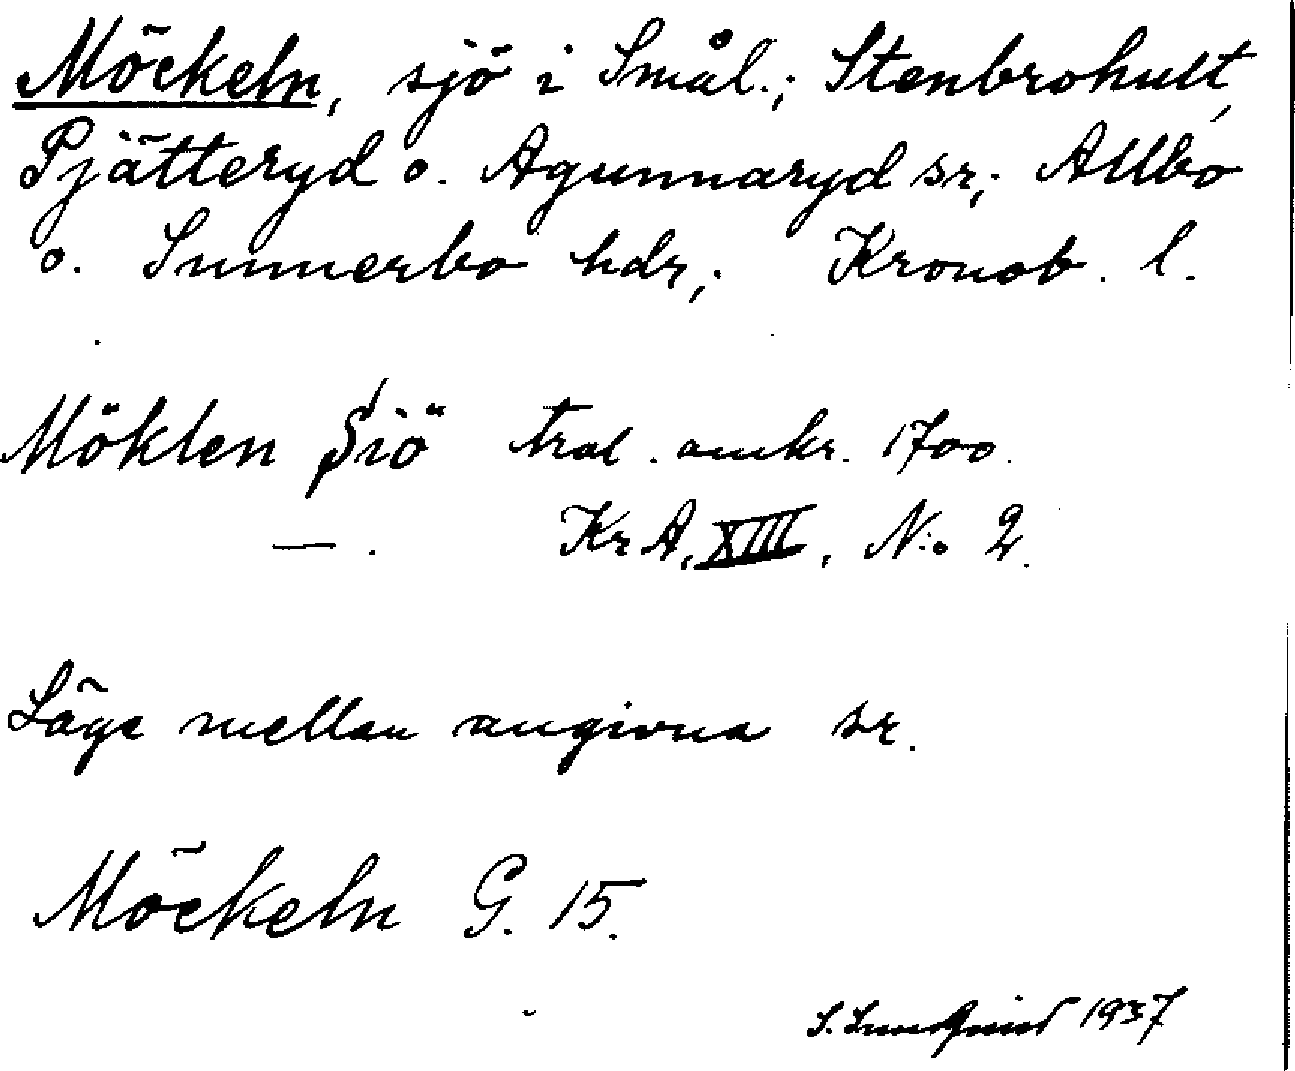 Möckeln, sjö i Smål.; Stenbrohult,
Pjätteryd o. Agunnaryd sr; Allbo
o. Sunnerbo hdr; Kronob. l.
Möklen Siö tral. omkr. 1700.
—. Kr A, XIII, N:o 2.
Läge mellan angivna sr.
Möckeln G. 15.
S. 1937